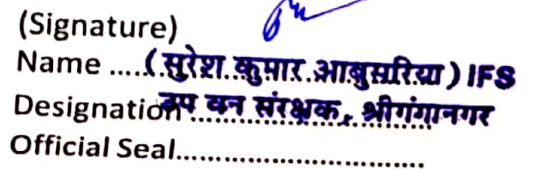 (Signature)
Name .....(सुरेश कुमार आबुसरिया) IFS
Designation उप वन संरक्षक, श्रीगंगानगर
Official Seal................................